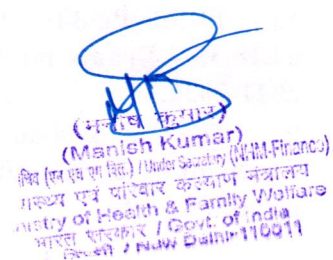 (मनीष कुमार)
(Manish Kumar)
सचिव (एन एच एम वित्त) / Under Secretary (NHM-Finance)
स्वास्थ्य एवं परिवार कल्याण मंत्रालय
Ministry of Health & Family Welfare
भारत सरकार / Govt. of India
दिल्ली / New Delhi-110011